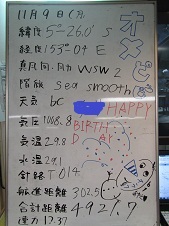 11月9日(月)
緯度 5°-26.0' S
経度 153°-04' E
真風向・風力 WSW 2
階級 sea smooth
天気 bc
HAPPY
気圧 1008.8
BIRTH
DAY
気温 29.8
水温 29.1
針路 T 014
航走距離 302.5
合計距離 4927.7
速力 12.37